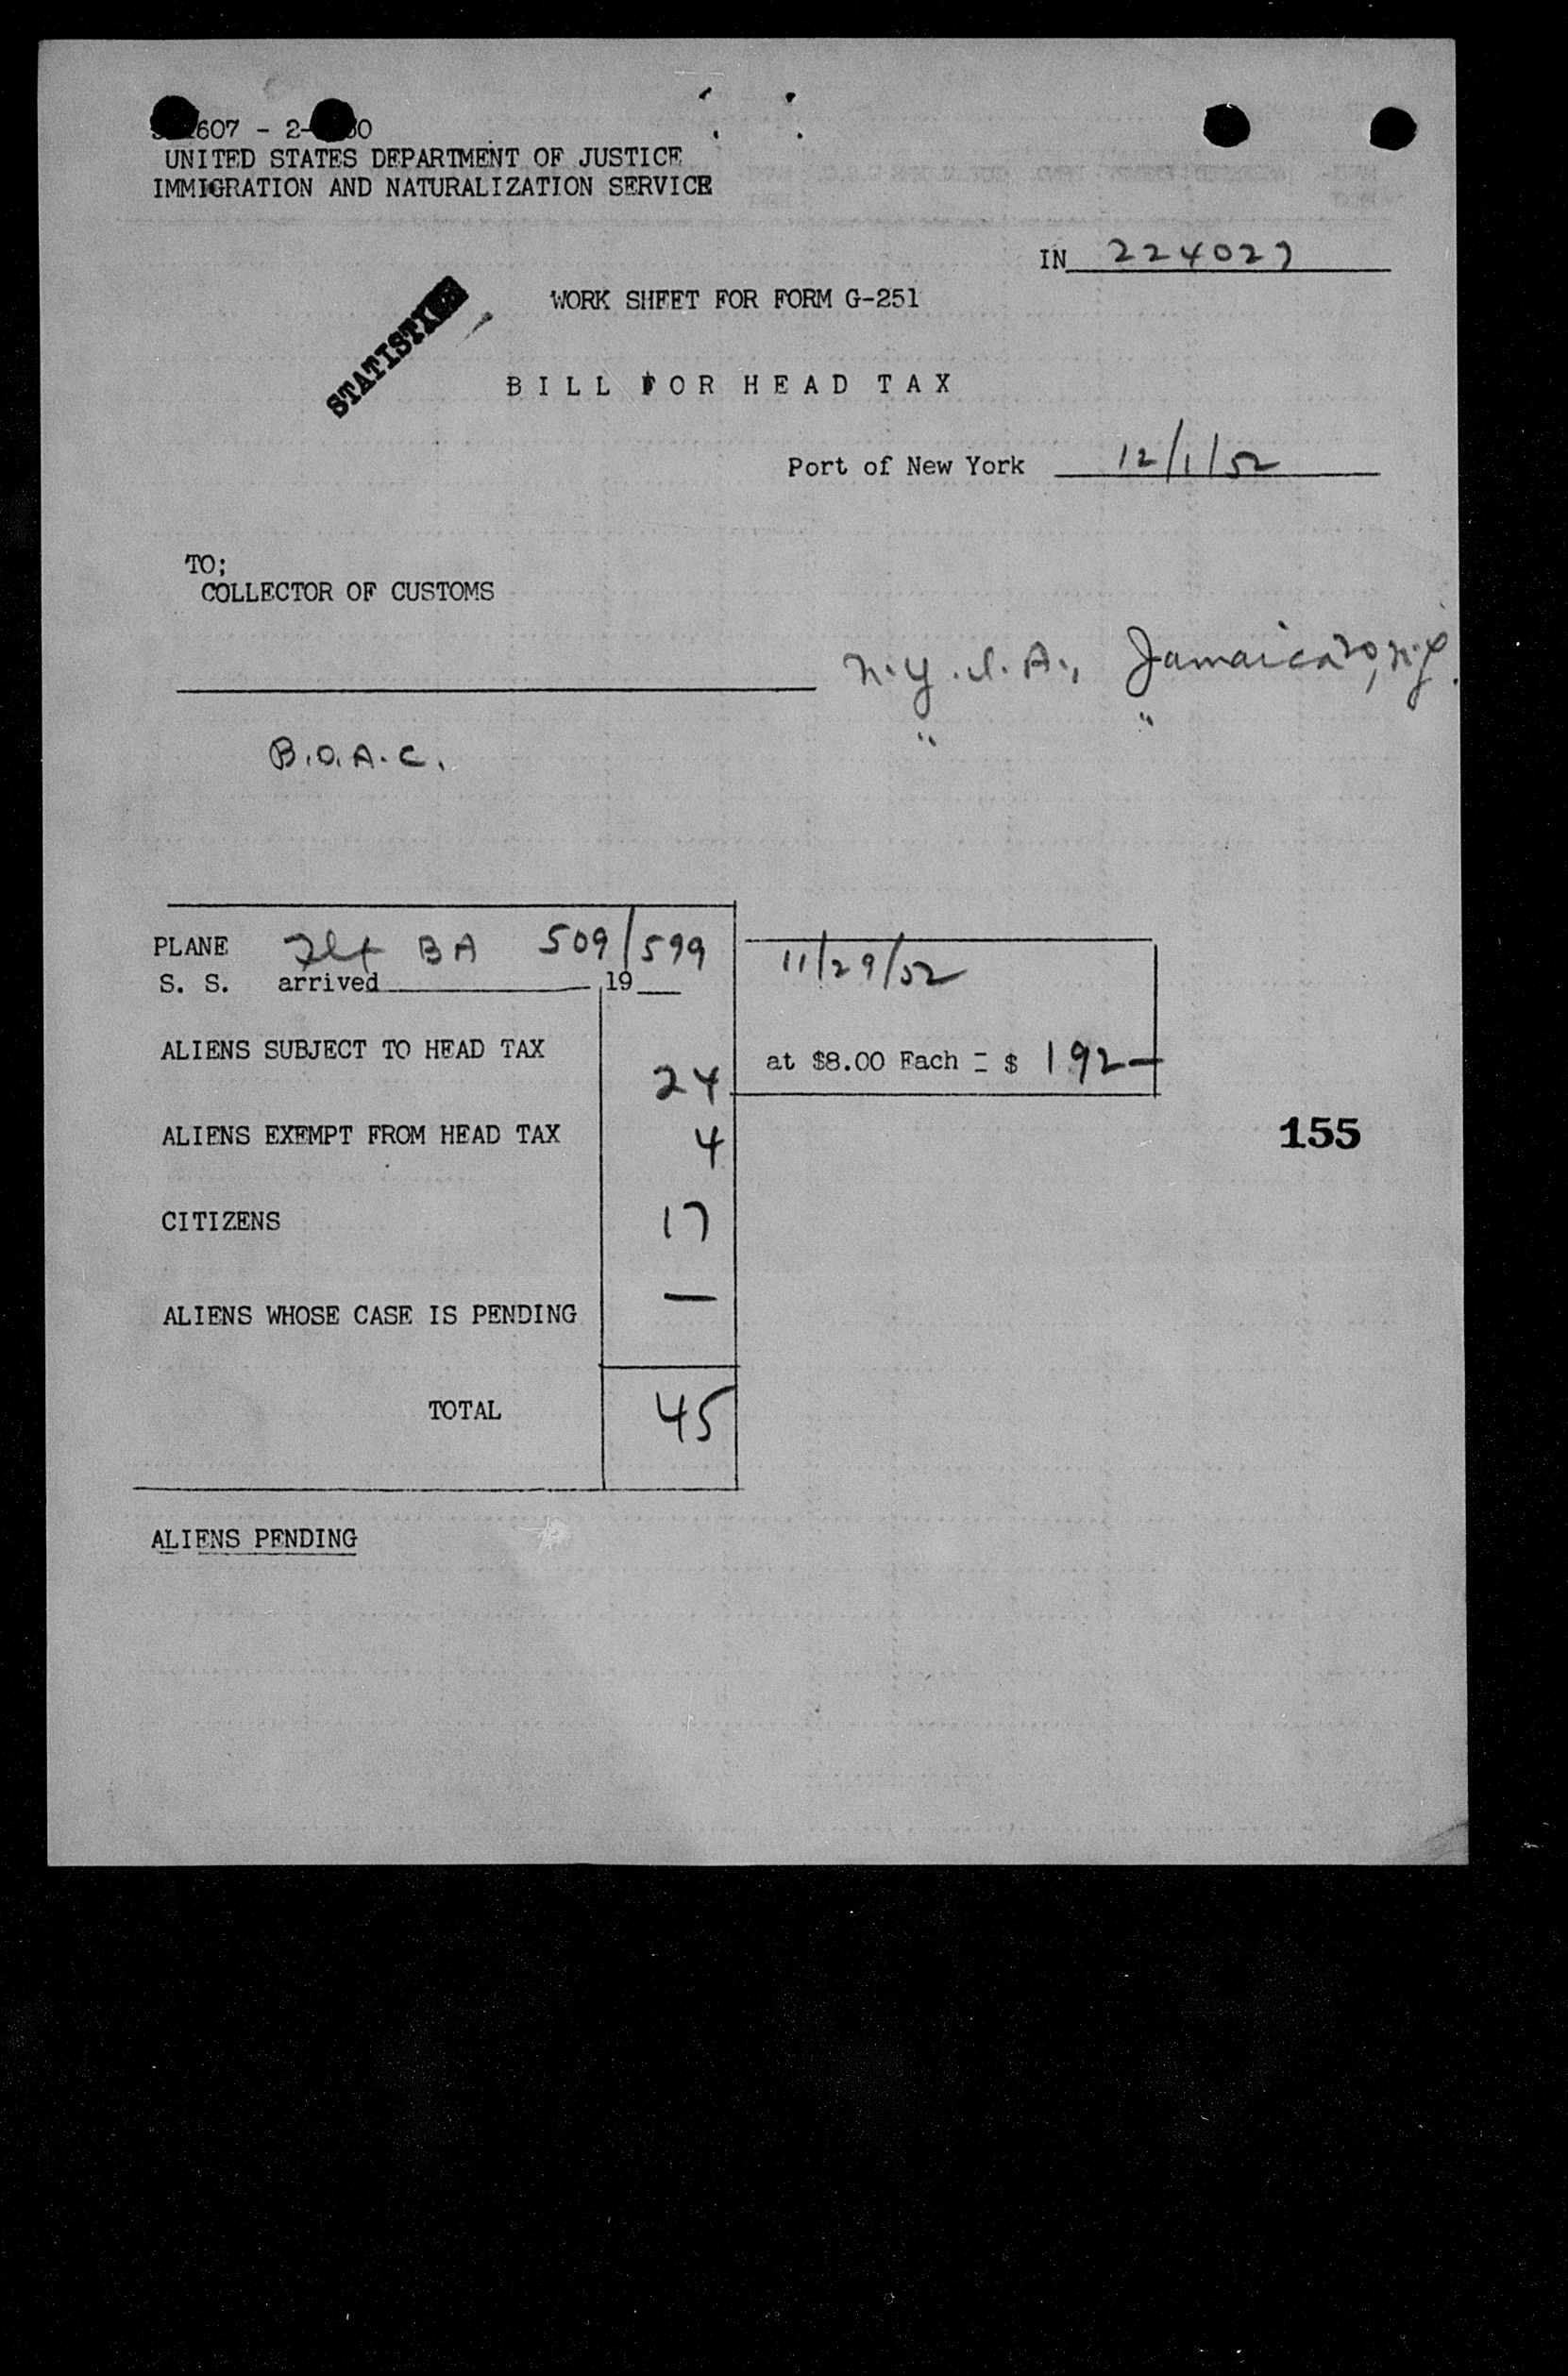 607 - 2-
UNITED STATES DEPARTMENT OF JUSTICE
IMMIGRATION AND NATURALIZATION SERVICE
IN 224027
WORK SHEET FOR FORM G-251
STATISTICS
BILL FOR HEAD TAX
Port of New York 12/1/52
TO;
COLLECTOR OF CUSTOMS
N.Y.I.A., Jamaica 30, N.Y.
" "
B.O.A.C.
PLANE Flt BA 509/599 11/29/52
S. S. arrived 19
ALIENS SUBJECT TO HEAD TAX 24 at $8.00 Each = $ 192—
ALIENS EXEMPT FROM HEAD TAX 4
155
CITIZENS 17
ALIENS WHOSE CASE IS PENDING —
TOTAL 45
ALIENS PENDING